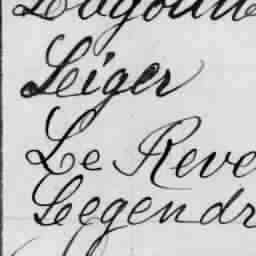 Leiger
Le Reve
Legendr